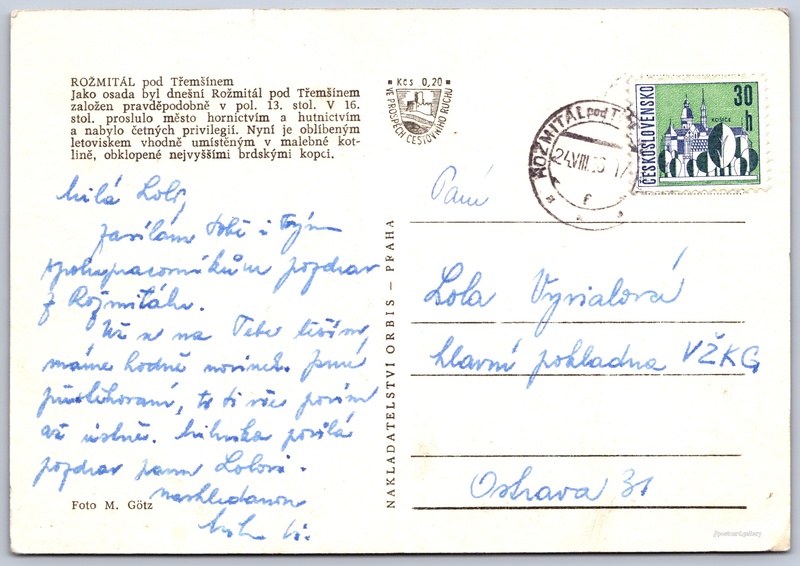 ROŽMITÁL pod Třemšínem
Jako osada byl dnešní Rožmitál pod Třemšínem
založen pravděpodobně v pol. 13. stol. V 16.
stol. proslulo město hornictvím a hutnictvím
a nabylo četných privilegií. Nyní je oblíbeným
letoviskem vhodně umístěným v malebné kot-
lině, obklopené nejvyššími brdskými kopci.
Kčs 0,20
VE PROSPĚCH CESTOVNÍHO RUCHU
ROŽMITÁL pod
24.VIII.
ČESKOSLOVENSKO
30 h
KOŠICE
Milá Lolo,
zasíláme Tobě i Tvým
spolupracovníkům pozdrav
z Rožmitálu.
Už se na Tebe těším,
máme hodně novinek. Jsme
přestěhovaní, to ti vše povím
až ústně. Miluška posílá
pozdrav
nashledanou
Foto M. Götz
NAKLADATELSTVÍ ORBIS — PRAHA
Paní
Lola Vyvialová
hlavní pokladna VŽKG
Ostrava 31